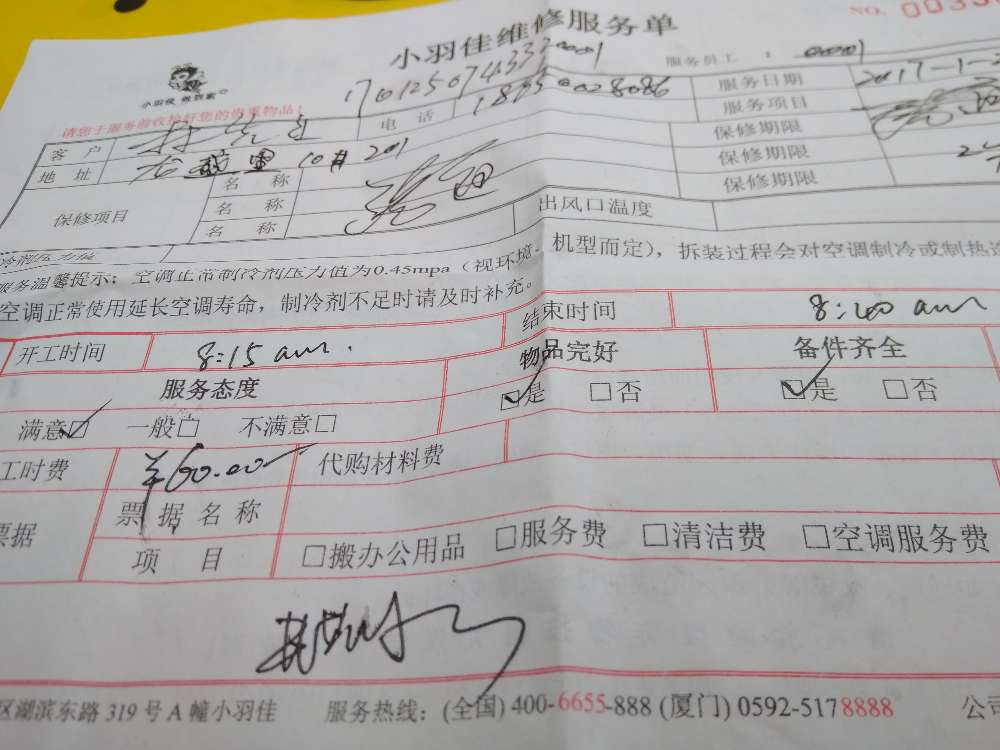 小羽佳维修服务单
NO. 0033
小羽佳 做到家
17012507433320001
服务员工 : 0001
请您于服务前收拾好您的贵重物品!
客 户 电 话 服务日期 2017-1-2
地 址 10# 201 服务项目
保修项目 名 称 保修期限
名 称 保修期限
名 称 保修期限
冷剂压力值 出风口温度
服务温馨提示:空调正常制冷剂压力值为0.45mpa(视环境、机型而定),拆装过程会对空调制冷或制热造
空调正常使用延长空调寿命,制冷剂不足时请及时补充。
开工时间 8:15 am. 结束时间 8:40 am
服务态度 物品完好 备件齐全
满意☑ 一般□ 不满意□ ☑是 □否 ☑是 □否
工时费 ¥60.00 代购材料费
票据 票据名称
项 目 □搬办公用品 □服务费 □清洁费 □空调服务费
区湖滨东路 319 号 A 幢小羽佳 服务热线:(全国) 400-6655-888 (厦门) 0592-5178888 公司